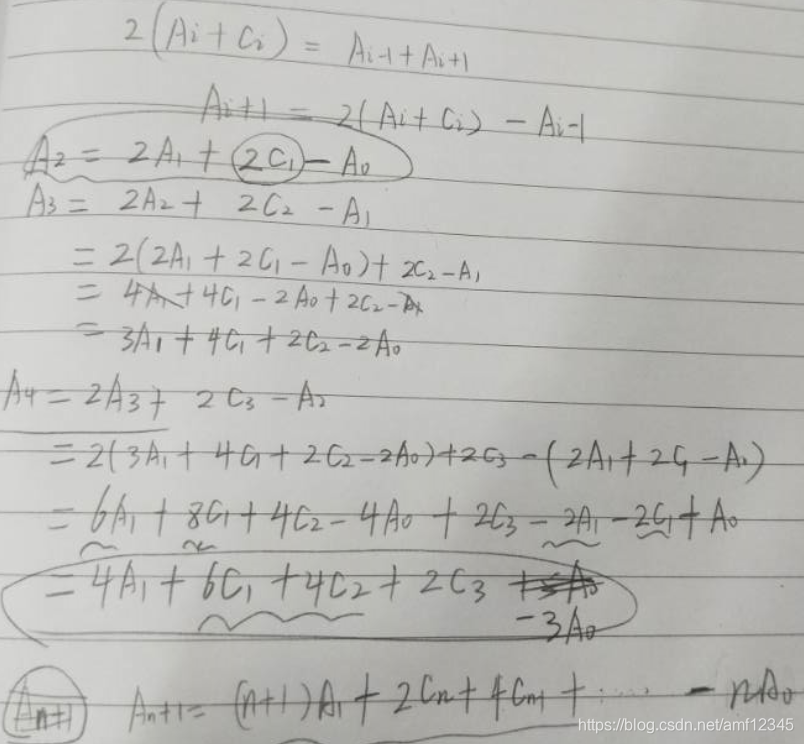 2(Ai+Ci) = Ai-1+Ai+1
Ai+1 = 2(Ai+Ci) - Ai-1
A2 = 2A1 + 2C1 - A0
A3 = 2A2 + 2C2 - A1
= 2(2A1 + 2C1 - A0) + 2C2 - A1
= 4A1 + 4C1 - 2A0 + 2C2 - A1
= 3A1 + 4C1 + 2C2 - 2A0
A4 = 2A3 + 2C3 - A2
= 2(3A1 + 4C1 + 2C2 - 2A0) + 2C3 - (2A1 + 2C1 - A0)
= 6A1 + 8C1 + 4C2 - 4A0 + 2C3 - 2A1 - 2C1 + A0
= 4A1 + 6C1 + 4C2 + 2C3
- 3A0
An+1 An+1 = (n+1)A1 + 2Cn + 4Cn-1 + ...... - nA0
https://blog.csdn.net/amf12345